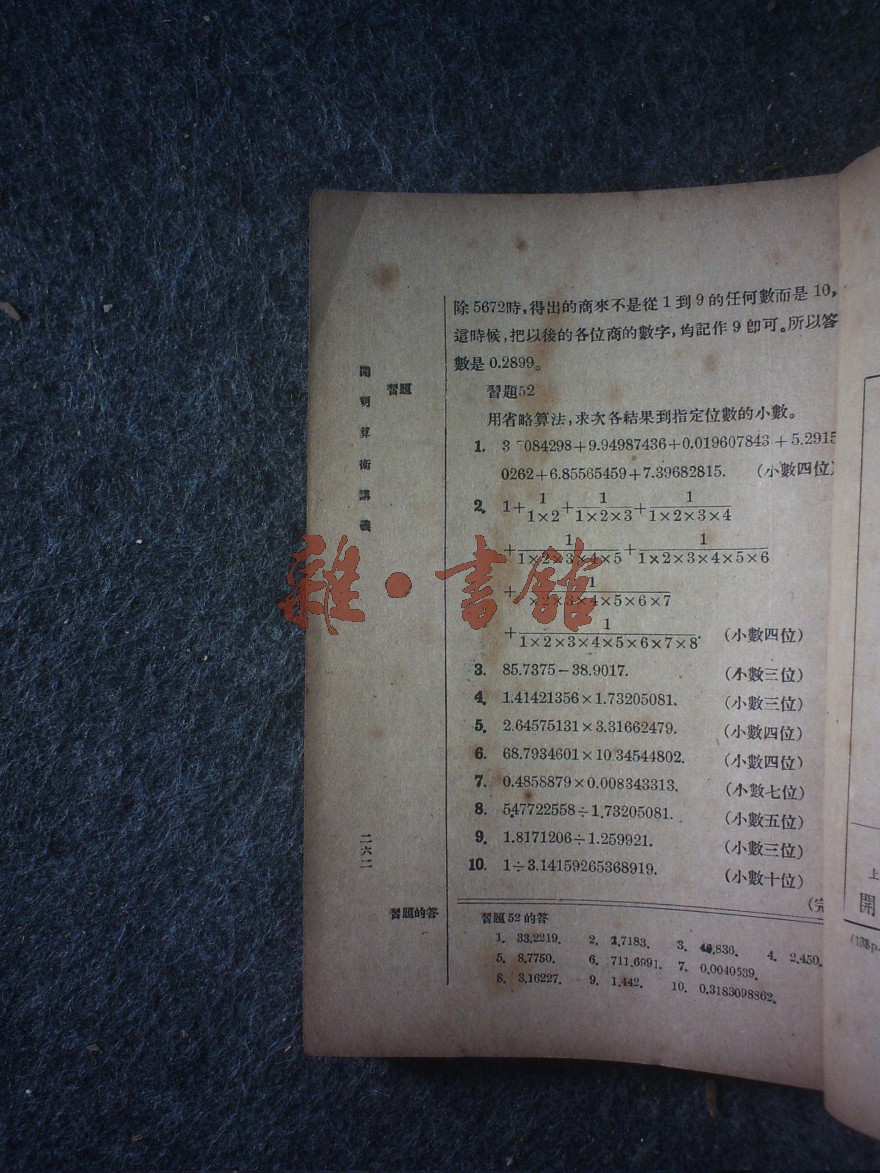 除5672時,得出的商來不是從1到9的任何數而是10,
這時候,把以後的各位商的數字,均記作9卽可。所以答
數是0.2899。
習題
習題52
用省略算法,求次各結果到指定位數的小數。
1. 3 084298+9.94987436+0.019607843+5.2915
0262+6.85565459+7.39682815. (小數四位)
2. 1+1/1×2+1/1×2×3+1/1×2×3×4
+1/1×2×3×4×5+1/1×2×3×4×5×6
+1/×2×3×4×5×6×7
+1/1×2×3×4×5×6×7×8. (小數四位)
3. 85.7375-38.9017. (小數三位)
4. 1.41421356×1.73205081. (小數三位)
5. 2.64575131×3.31662479. (小數四位)
6. 68.7934601×10.34544802. (小數四位)
7. 0.4858879×0.008343313. (小數七位)
8. 5.47722558÷1.73205081. (小數五位)
9. 1.8171206÷1.259921. (小數三位)
10. 1÷3.14159265368919. (小數十位)
(完
習題的答
習題52的答
1. 33.2219. 2. 2.7183. 3. 46.836. 4. 2.450.
5. 8.7750. 6. 711.6991. 7. 0.0040539.
8. 3.16227. 9. 1.442. 10. 0.3183098862.
開明算術講義
二六二
雜·書館
上
開
(138p.